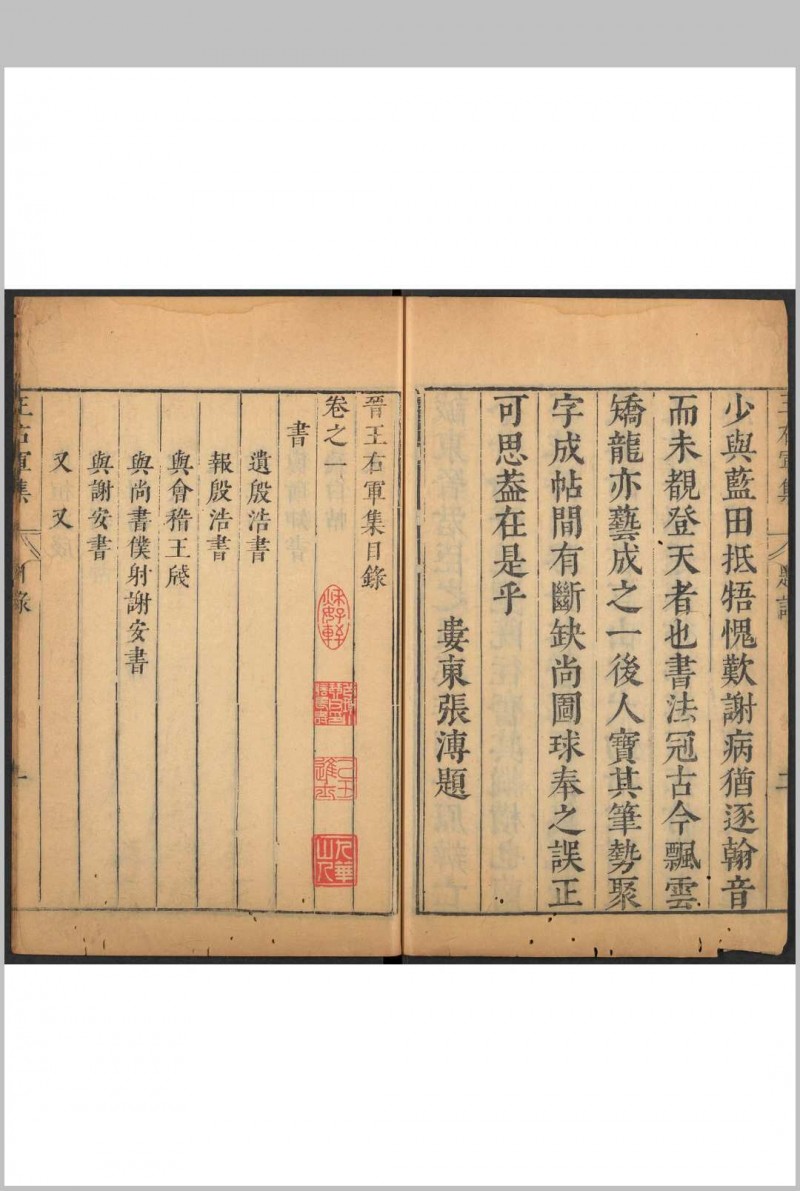 少與藍田抵牾愧歎謝病猶逐翰音
而未覩登天者也書法冠古今飄雲
矯龍亦藝成之一後人寶其筆勢聚
字成帖間有斷缺尚圖球奉之誤正
可思葢在是乎
婁東張溥題
晉王右軍集目錄
卷之一
書
遺殷浩書
報殷浩書
與會稽王牋
與尚書僕射謝安書
與謝安書
又 又
王右軍集 目錄 一
九華山人